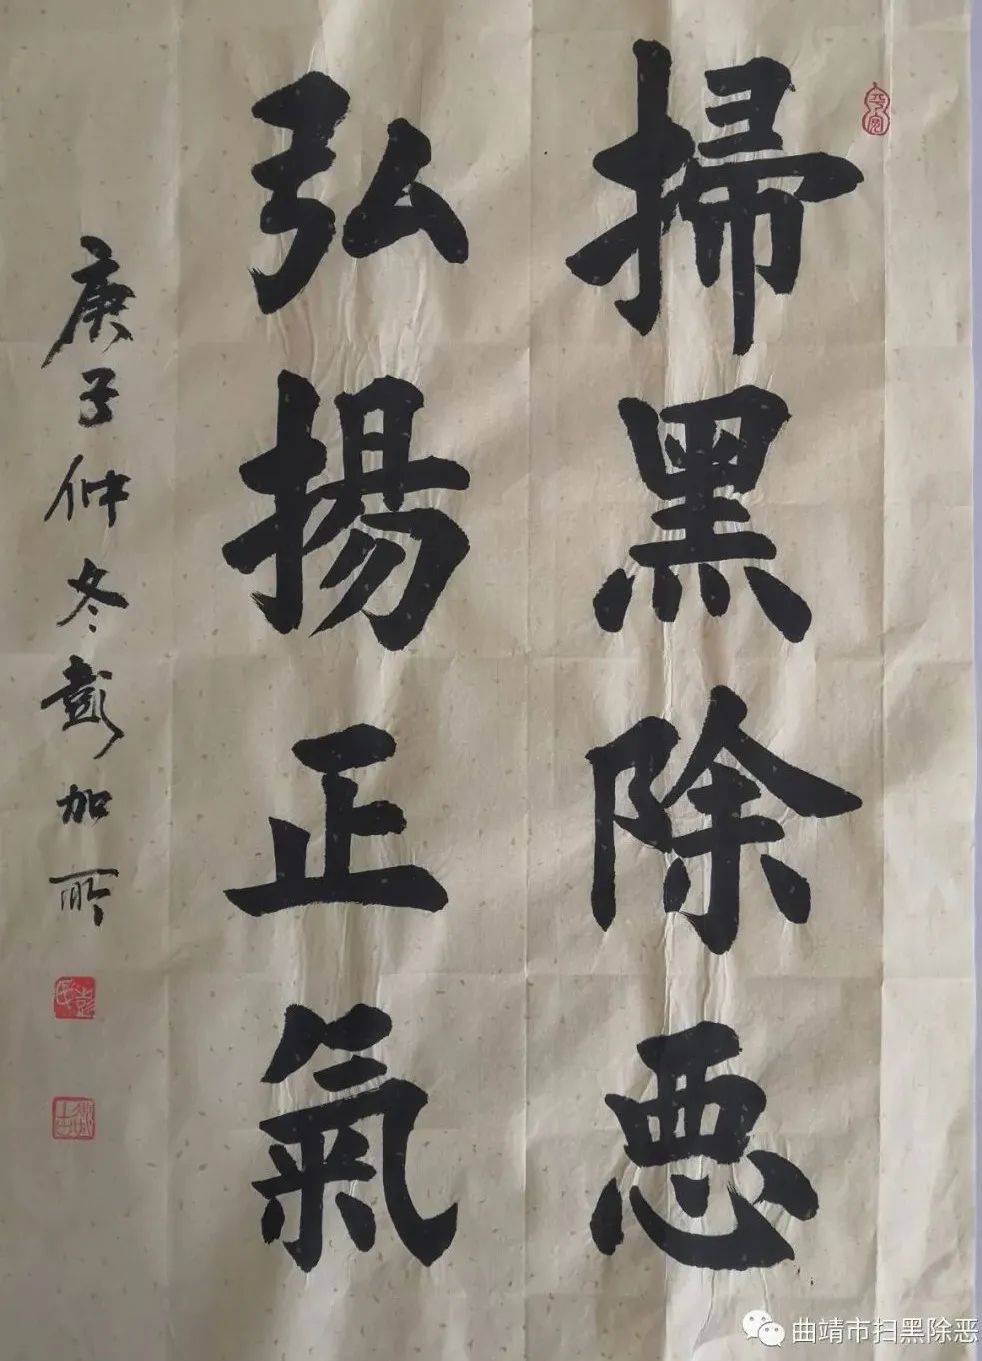 掃黑除惡
弘揚正氣
庚子仲冬彭加
曲靖市扫黑除恶